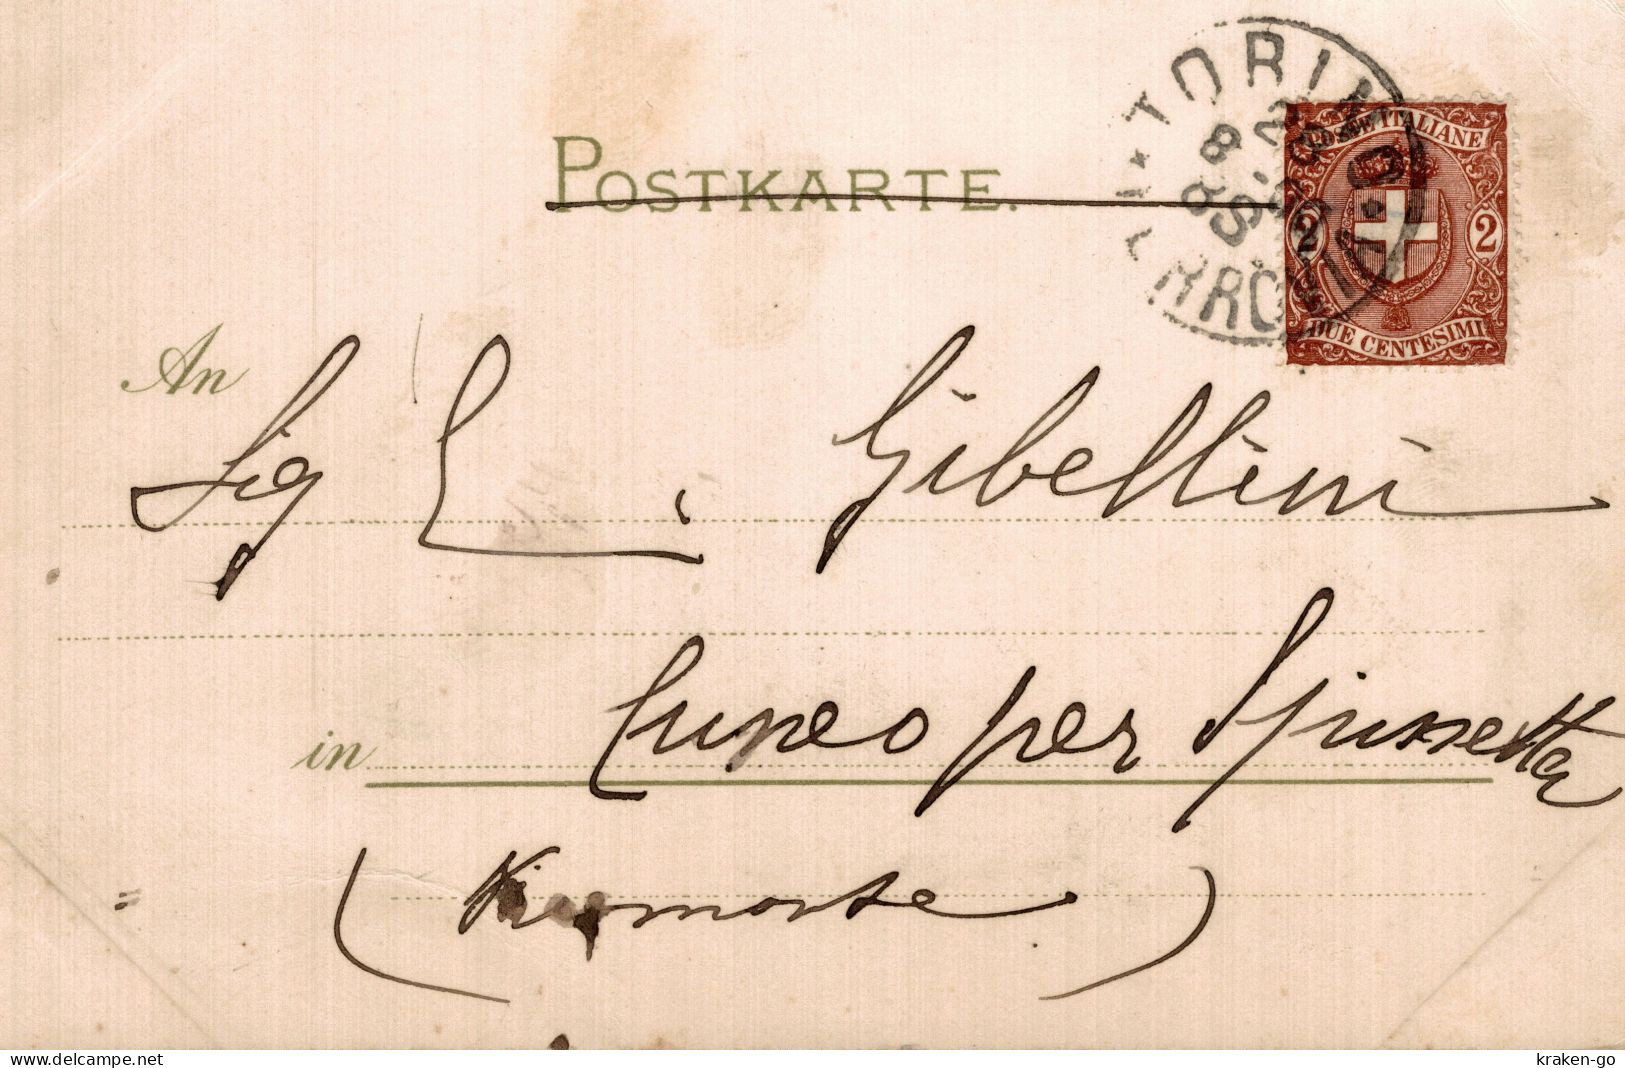 POSTKARTE.
TORINO
8 2
98
FERROVIA
POSTE ITALIANE
2 2
DUE CENTESIMI
An
Sig L. Gibellini
in Cuneo per Spinetta
(Piemonte)
www.delcampe.net
kraken-go